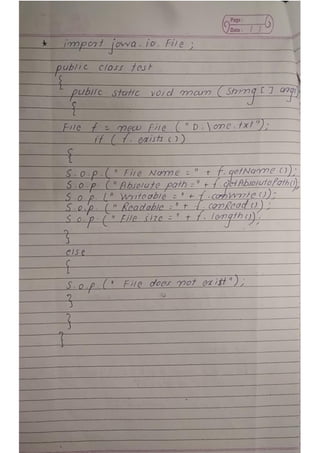 Page:
Date:
* import java.io.File;
public class test
{
public static void main (String [] args)
{
File f = new File ("D:\one.txt");
if (f.exists())
{
S.o.p. ("File Name =" + f.getName());
S.o.p. ("Absolute path =" + f.getAbsolutePath());
S.o.p. ("Writeable =" + f.canWrite());
S.o.p. ("Readable =" + f.canRead());
S.o.p. ("File size =" + f.length());
}
else
{
S.o.p. ("File does not exist");
}
}
}